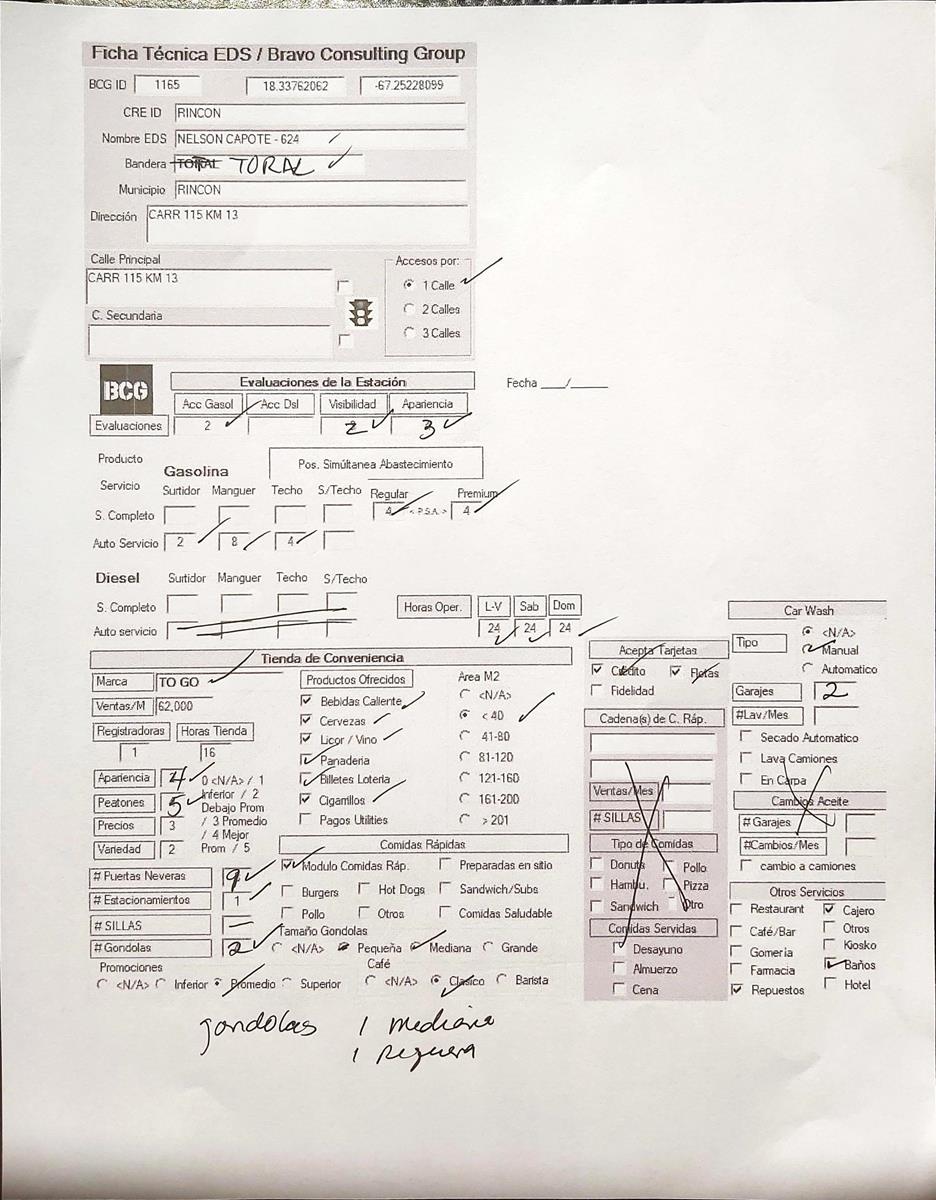 Ficha Técnica EDS / Bravo Consulting Group
BCG ID 1165 18.33762062 -67.25228099
CRE ID RINCON
Nombre EDS NELSON CAPOTE - 624
Bandera TORAL TORAL
Municipio RINCON
Dirección CARR 115 KM 13
Calle Principal
CARR 115 KM 13
C. Secundaria
Accesos por:
1 Calle
2 Calles
3 Calles
BCG
Evaluaciones de la Estación
Fecha ___/_____
Acc Gasol Acc Dsl Visibilidad Apariencia
Evaluaciones 2 2 3
Producto
Servicio
Gasolina
Pos. Simúltanea Abastecimiento
Surtidor Manguer Techo S/Techo Regular Premium
S. Completo 4 < P.S.A. > 4
Auto Servicio 2 8 4
Diesel Surtidor Manguer Techo S/Techo
S. Completo
Auto servicio
Horas Oper. L-V Sab Dom
24 24 24
Tienda de Conveniencia
Marca TO GO
Ventas/M 62,000
Registradoras Horas Tienda
1 16
Apariencia 4
Peatones 5
Precios 3
Variedad 2
0 <N/A> / 1
Inferior / 2
Debajo Prom
/ 3 Promedio
/ 4 Mejor
Prom / 5
# Puertas Neveras 9
# Estacionamientos 1
# SILLAS —
# Gondolas 2
Productos Ofrecidos
Bebidas Caliente
Cervezas
Licor / Vino
Panaderia
Billetes Loteria
Cigarrillos
Pagos Utilities
Area M2
<N/A>
< 40
41-80
81-120
121-160
161-200
> 201
Comidas Rápidas
Modulo Comidas Ráp. Preparadas en sitio
Burgers Hot Dogs Sandwich/Subs
Pollo Otros Comidas Saludable
Tamaño Gondolas
<N/A> Pequeña Mediana Grande
Promociones
<N/A> Inferior Promedio Superior
Café
<N/A> Clasico Barista
Acepta Tarjetas
Crédito Flotas
Fidelidad
Cadena(s) de C. Ráp.
Ventas/Mes
# SILLAS
Tipo de Comidas
Donuts Pollo
Hambu. Pizza
Sandwich Otro
Comidas Servidas
Desayuno
Almuerzo
Cena
Car Wash
Tipo
<N/A>
Manual
Automatico
Garajes 2
#Lav/Mes
Secado Automatico
Lava Camiones
En Carpa
Cambios Aceite
# Garajes
#Cambios/Mes
cambio a camiones
Otros Servicios
Restaurant Cajero
Café/Bar Otros
Gomeria Kiosko
Farmacia Baños
Repuestos Hotel
gondolas 1 mediana
1